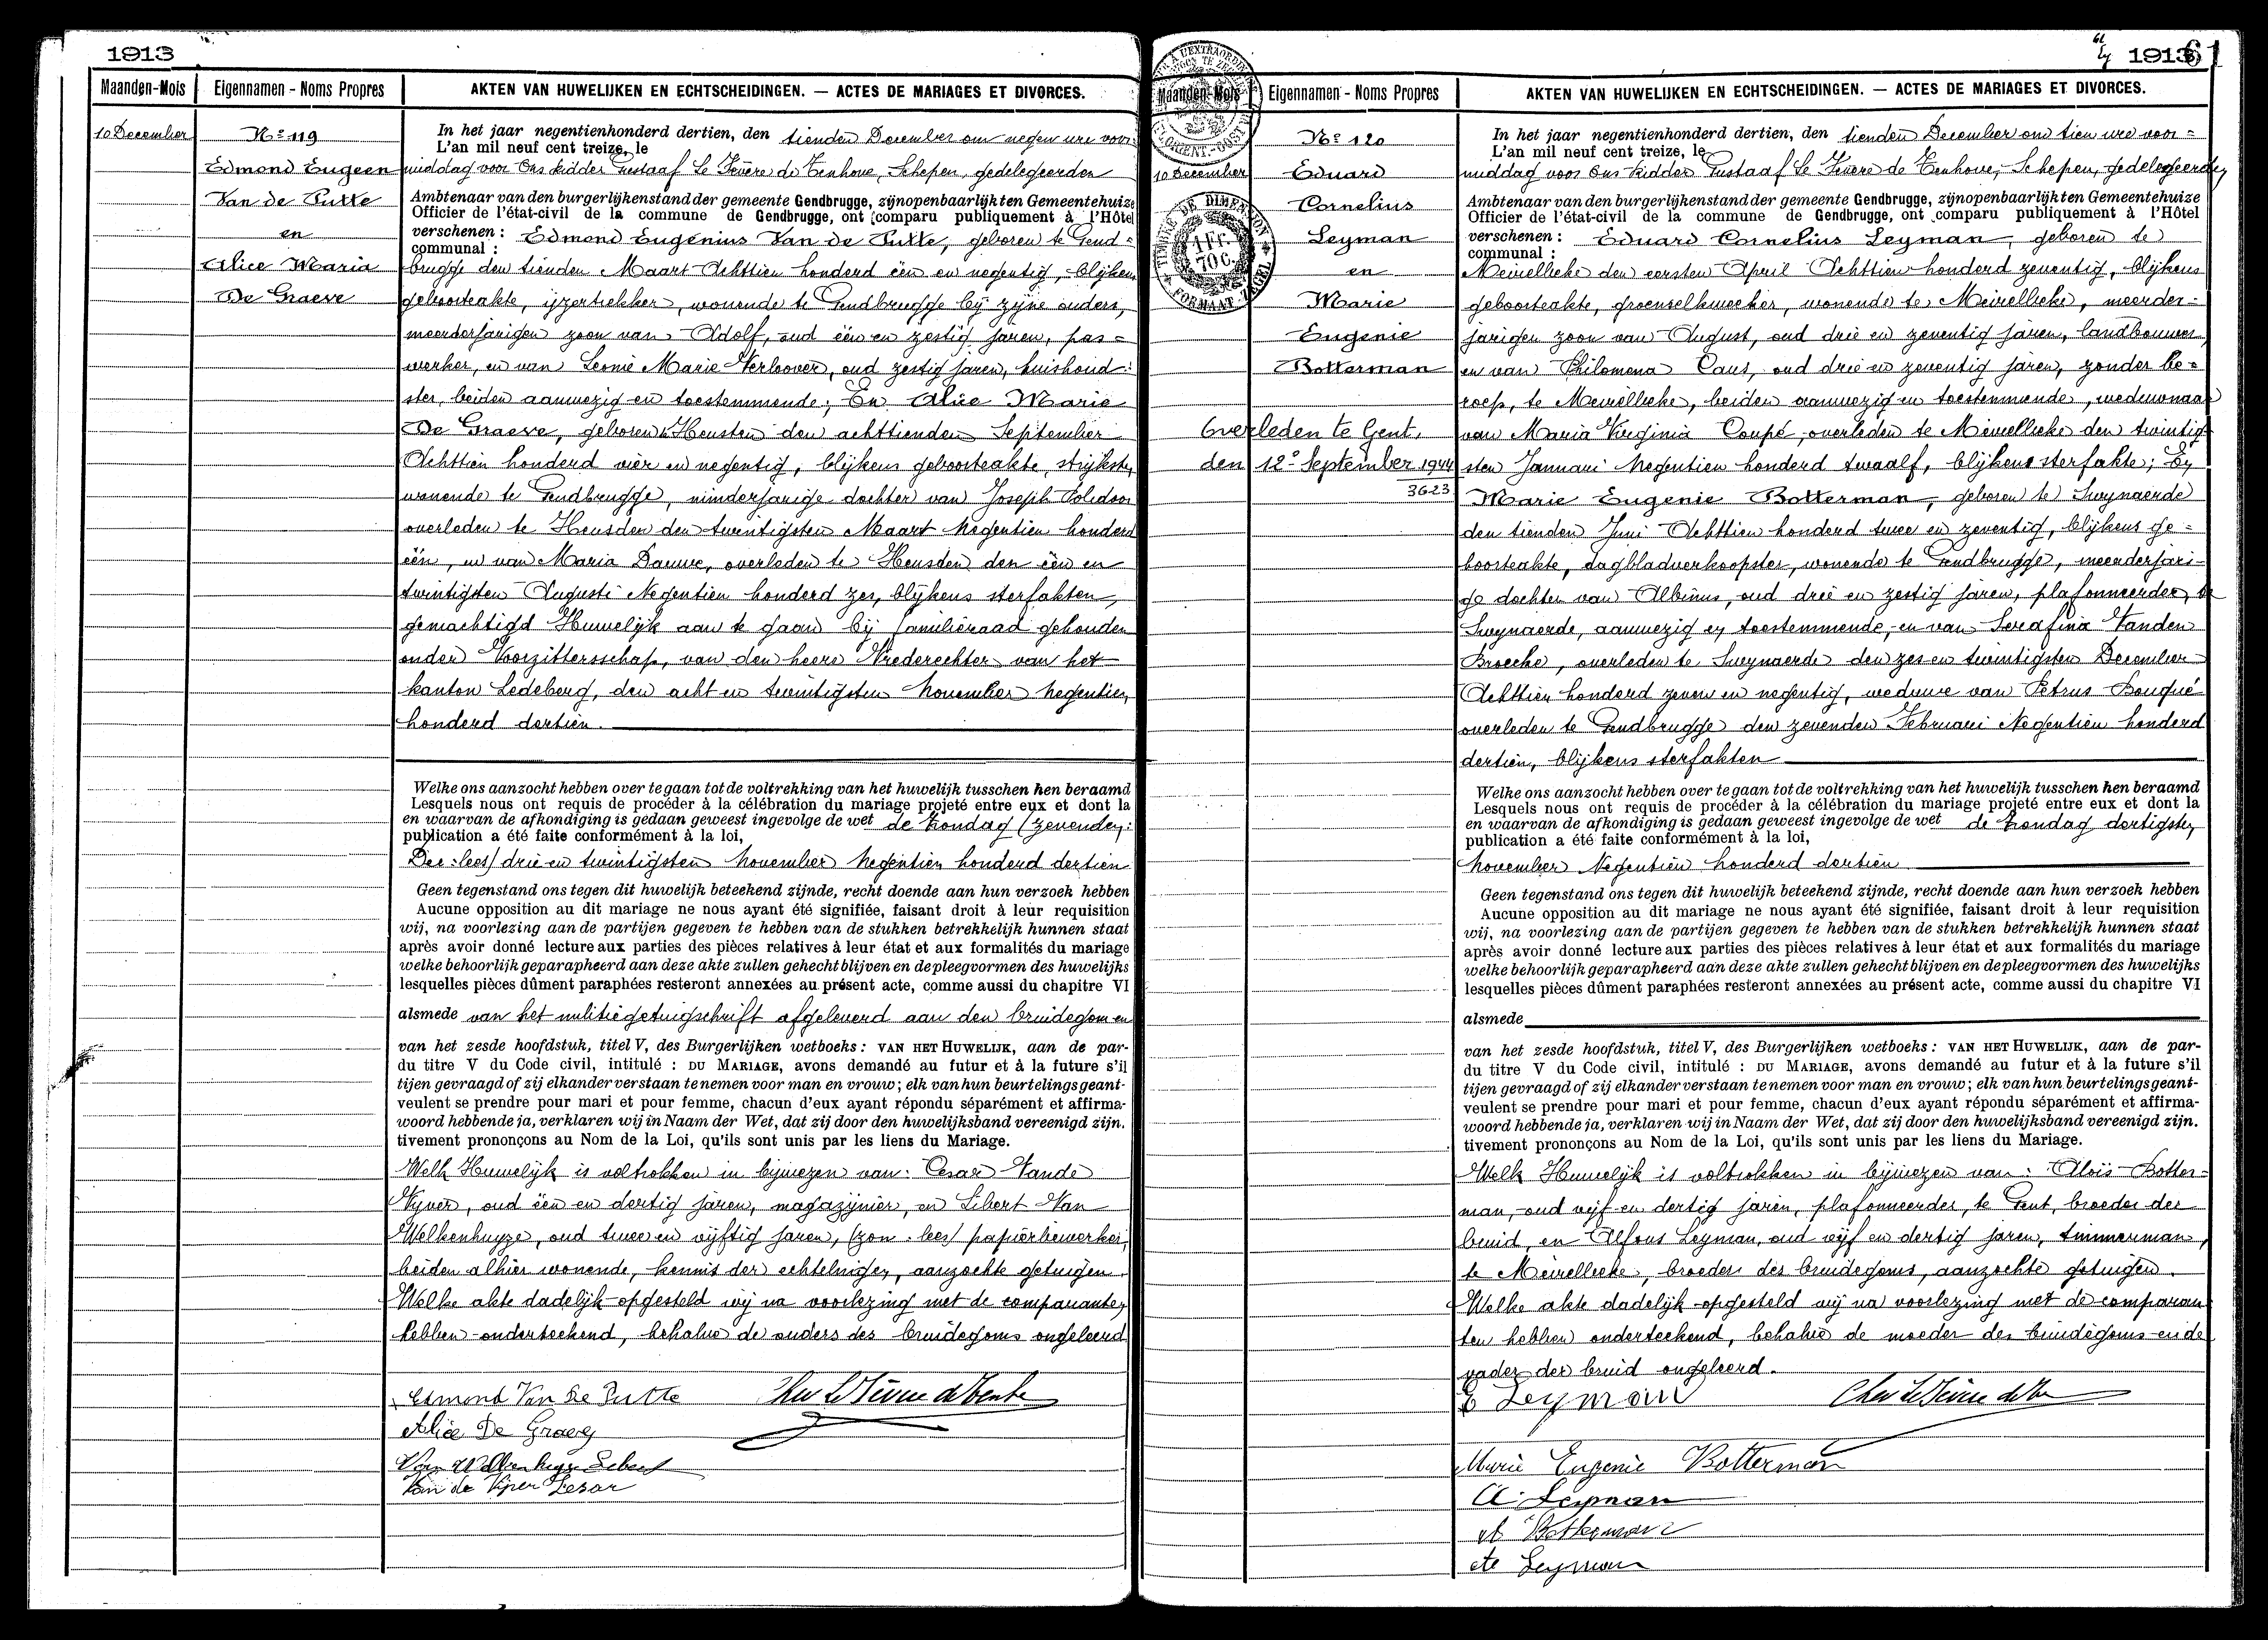 1913
Maanden-Mois
Eigennamen - Noms Propres
AKTEN VAN HUWELIJKEN EN ECHTSCHEIDINGEN. — ACTES DE MARIAGES ET DIVORCES.
10 December
Nº 119
Edmond Eugeen
Van de Putte
en
Alice Maria
De Graeve
In het jaar negentienhonderd dertien, den tienden December om negen ure voor-
L'an mil neuf cent treize, le
middag voor Ons Ridder Gustaaf Le Fèvere de Tenhove, Schepen, gedelegeerden
Ambtenaar van den burgerlijkenstand der gemeente Gendbrugge, zijn openbaarlijk ten Gemeentehuize
Officier de l'état-civil de la commune de Gendbrugge, ont comparu publiquement à l'Hôtel
verschenen : Edmond Eugenius Van de Putte, geboren te Gend-
communal :
brugge den tienden Maart Achttien honderd één en negentig, blijkens
geboorteakte, ijzertrekker, wonende te Gendbrugge bij zijne ouders,
meerderjarigen zoon van Adolf, oud één en zestig jaren, pas-
werker, en van Leonie Marie Verloover, oud zestig jaren, huishoud-
ster, beiden aanwezig en toestemmende; En Alice Marie
De Graeve, geboren te Heusten den achttienden September
Achttien honderd vier en negentig, blijkens geboorteakte, strijkster,
wonende te Gendbrugge, minderjarige dochter van Joseph Polidoor
overleden te Heusden den twintigsten Maart Negentien honderd
één, en van Maria Dauwe, overleden te Heusden den één en
twintigsten Augusti Negentien honderd zes, blijkens sterfakten,
gemachtigd Huwelijk aan te gaan bij familieraad gehouden
onder Voorzittersschap, van den heere Vrederechter van het
kanton Ledeberg, den acht en twintigsten November Negentien
honderd dertien.
Welke ons aanzocht hebben over te gaan tot de voltrekking van het huwelijk tusschen hen beraamd
Lesquels nous ont requis de procéder à la célébration du mariage projeté entre eux et dont la
en waarvan de afkondiging is gedaan geweest ingevolge de wet de Zondag (zevenden
publication a été faite conformément à la loi,
Dec: lees) drie en twintigsten November Negentien honderd dertien
Geen tegenstand ons tegen dit huwelijk beteekend zijnde, recht doende aan hun verzoek hebben
Aucune opposition au dit mariage ne nous ayant été signifiée, faisant droit à leur requisition
wij, na voorlezing aan de partijen gegeven te hebben van de stukken betrekkelijk hunnen staat
après avoir donné lecture aux parties des pièces relatives à leur état et aux formalités du mariage
welke behoorlijk geparapheerd aan deze akte zullen gehecht blijven en de pleegvormen des huwelijks
lesquelles pièces dûment paraphées resteront annexées au présent acte, comme aussi du chapitre VI
alsmede van het militiegetuigschrift afgeleverd aan den bruidegom en
van het zesde hoofdstuk, titel V, des Burgerlijken wetboeks : VAN HET HUWELIJK, aan de par-
du titre V du Code civil, intitulé : DU MARIAGE, avons demandé au futur et à la future s'il
tijen gevraagd of zij elkander verstaan te nemen voor man en vrouw ; elk van hun beurtelings geant-
veulent se prendre pour mari et pour femme, chacun d'eux ayant répondu séparément et affirma-
woord hebbende ja, verklaren wij in Naam der Wet, dat zij door den huwelijksband vereenigd zijn.
tivement prononçons au Nom de la Loi, qu'ils sont unis par les liens du Mariage.
Welk Huwelijk is voltrokken in bijwezen van: Cesar Vande
Vyver, oud één en dertig jaren, magazijnier, en Libert Van
Welkenhuyze, oud twee en vijftig jaren, (zon. lees) papierbewerker,
beiden alhier wonende, kennis der echtelingen, aanzochte getuigen.
Welke akte dadelijk opgesteld wij na voorlezing met de comparanten
hebben onderteekend, behalve de ouders des bruidegoms ongeleerd
Edmond Van De Putte
Alice De Graeve
Van de Vyver Cesar
61
1913
61
Maanden-Mois
Eigennamen - Noms Propres
AKTEN VAN HUWELIJKEN EN ECHTSCHEIDINGEN. — ACTES DE MARIAGES ET DIVORCES.
TIMBRE DE DIMENSION
1 Fr.
70 C.
FORMAAT-ZEGEL
10 December
Nº 120
Eduard
Cornelius
Leyman
en
Marie
Eugenie
Botterman
Overleden te Gent,
den 12º September 1944
3623
In het jaar negentienhonderd dertien, den tienden December om tien ure voor-
L'an mil neuf cent treize, le
middag voor Ons Ridder Gustaaf Le Fèvere de Tenhove, Schepen, gedelegeerden
Ambtenaar van den burgerlijkenstand der gemeente Gendbrugge, zijn openbaarlijk ten Gemeentehuize
Officier de l'état-civil de la commune de Gendbrugge, ont comparu publiquement à l'Hôtel
verschenen : Eduard Cornelius Leyman, geboren te
communal :
Meirelbeke den eersten April Achttien honderd zeventig, blijkens
geboorteakte, groenselkweeker, wonende te Meirelbeke, meerder-
jarigen zoon van August, oud drie en zeventig jaren, landbouwer,
en van Philomena Caus, oud drie en zeventig jaren, zonder be-
roep, te Meirelbeke, beiden aanwezig en toestemmende, weduwnaar
van Maria Virginia Coupé, overleden te Meirelbeke den twintig-
sten Januari Negentien honderd twaalf, blijkens sterfakte; En
Marie Eugenie Botterman, geboren te Swynaerde
den tienden Juni Achttien honderd twee en zeventig, blijkens ge-
boorteakte, dagbladverkoopster, wonende te Gendbrugge, meerderjari-
ge dochter van Albinus, oud drie en zestig jaren, plafonneerder, te
Swynaerde, aanwezig en toestemmende, en van Serafina Vanden
Broecke, overleden te Swynaerde den zes en twintigsten December
Achttien honderd zeven en negentig, weduwe van Petrus Bouqué
overleden te Gendbrugge den zevenden Februari Negentien honderd
dertien, blijkens sterfakten
Welke ons aanzocht hebben over te gaan tot de voltrekking van het huwelijk tusschen hen beraamd
Lesquels nous ont requis de procéder à la célébration du mariage projeté entre eux et dont la
en waarvan de afkondiging is gedaan geweest ingevolge de wet de Zondag dertigsten
publication a été faite conformément à la loi,
November Negentien honderd dertien
Geen tegenstand ons tegen dit huwelijk beteekend zijnde, recht doende aan hun verzoek hebben
Aucune opposition au dit mariage ne nous ayant été signifiée, faisant droit à leur requisition
wij, na voorlezing aan de partijen gegeven te hebben van de stukken betrekkelijk hunnen staat
après avoir donné lecture aux parties des pièces relatives à leur état et aux formalités du mariage
welke behoorlijk geparapheerd aan deze akte zullen gehecht blijven en de pleegvormen des huwelijks
lesquelles pièces dûment paraphées resteront annexées au présent acte, comme aussi du chapitre VI
alsmede
van het zesde hoofdstuk, titel V, des Burgerlijken wetboeks : VAN HET HUWELIJK, aan de par-
du titre V du Code civil, intitulé : DU MARIAGE, avons demandé au futur et à la future s'il
tijen gevraagd of zij elkander verstaan te nemen voor man en vrouw ; elk van hun beurtelings geant-
veulent se prendre pour mari et pour femme, chacun d'eux ayant répondu séparément et affirma-
woord hebbende ja, verklaren wij in Naam der Wet, dat zij door den huwelijksband vereenigd zijn.
tivement prononçons au Nom de la Loi, qu'ils sont unis par les liens du Mariage.
Welk Huwelijk is voltrokken in bijwezen van: Aloïs Botter-
man, oud vijf en dertig jaren, plafonneerder, te Gent, broeder der
bruid, en Alfons Leyman, oud vijf en dertig jaren, timmerman,
te Meirelbeke, broeder des bruidegoms, aanzochte getuigen.
Welke akte dadelijk opgesteld wij na voorlezing met de comparan
ten hebben onderteekend, behalve de moeder des bruidegoms en de
vader der bruid ongeleerd.
E Leyman
Marie Eugenie Botterman
A. Leyman
A Botterman
A Leyman